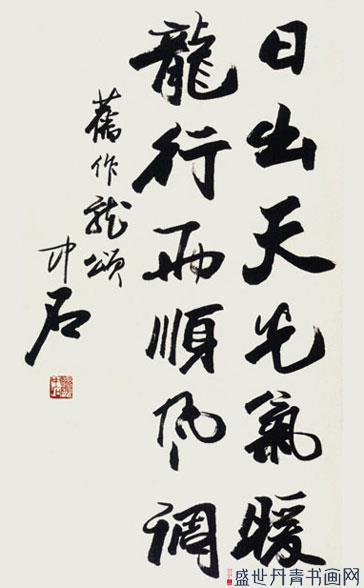 日出天光氣暖
龍行雨順風调
舊作龍頌
中石
盛世丹青书画网